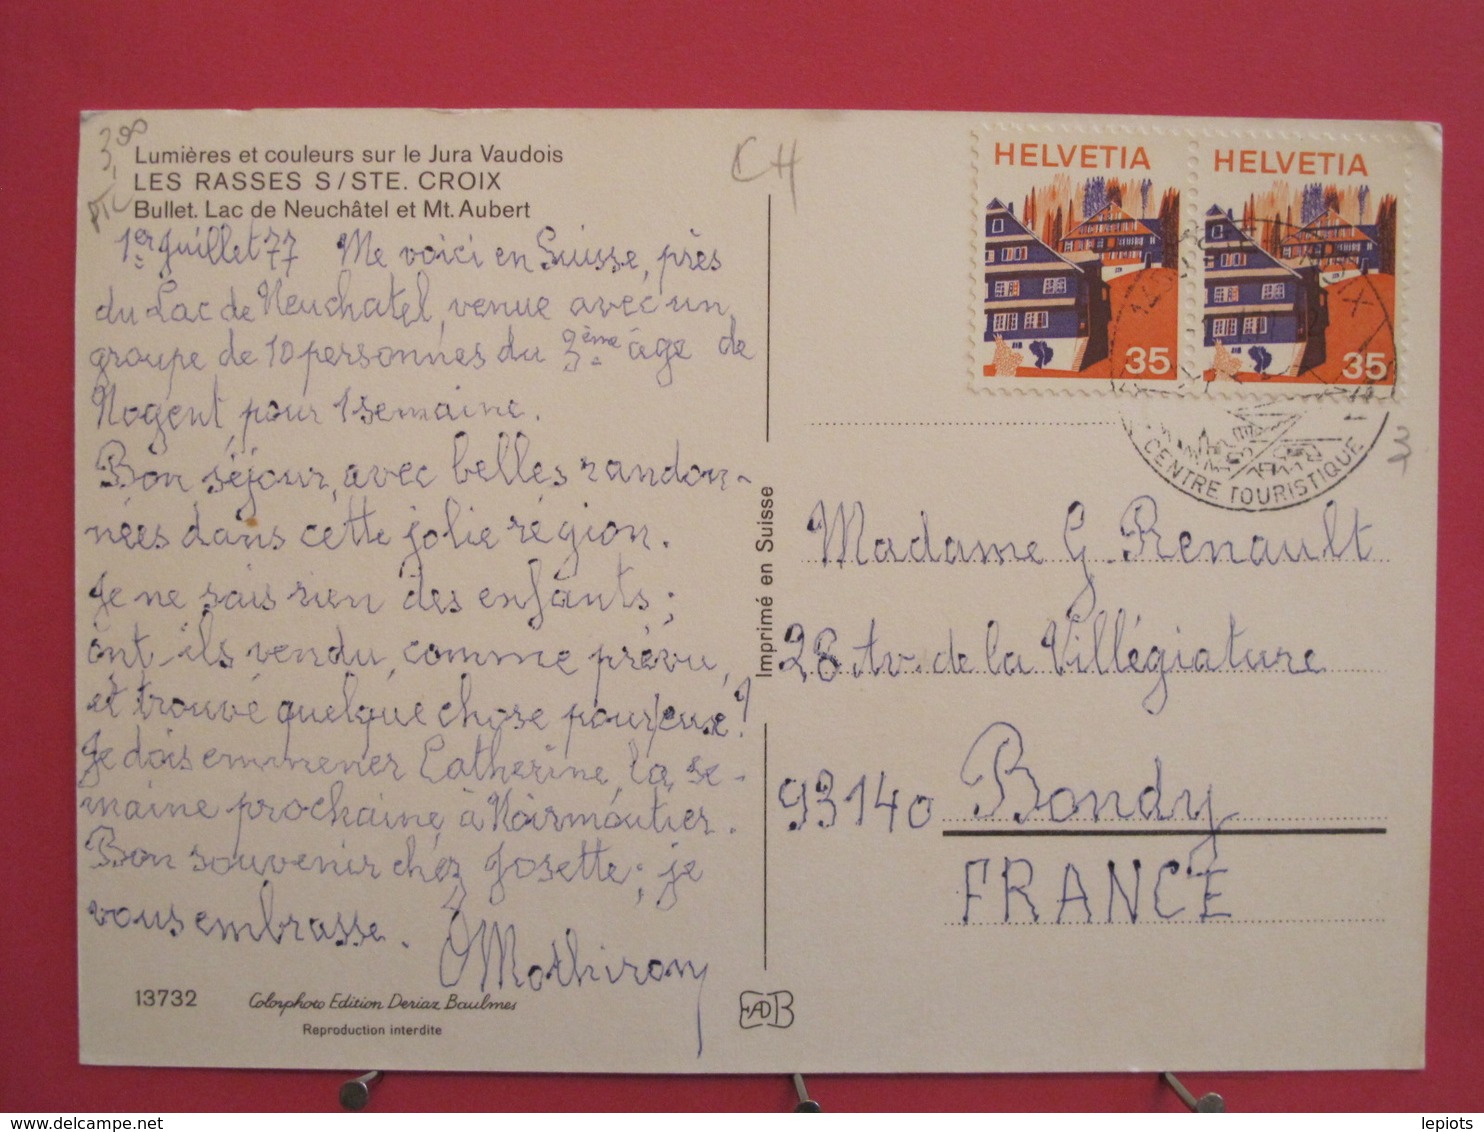 3,00
CH
Lumières et couleurs sur le Jura Vaudois
LES RASSES S/STE. CROIX
Bullet. Lac de Neuchâtel et Mt. Aubert
1er Juillet 77 Me voici en Suisse, près
du Lac de Neuchatel, venue avec un
groupe de 10 personnes du 3ème âge de
Nogent pour 1 semaine.
Bon séjour, avec belles randon-
nées dans cette jolie région.
Je ne sais rien des enfants ;
ont-ils vendu, comme prévu,
et trouvé quelque chose pour eux ?
Je dois emmener Catherine, la se-
maine prochaine, à Noirmoutier.
Bon souvenir chez Josette ; je
vous embrasse.
13732
Colorphoto Edition Deriaz Baulmes
Reproduction interdite
Imprimé en Suisse
HELVETIA
35
HELVETIA
35
CENTRE TOURISTIQUE
3
Madame G. Renault
28 Av. de la Villégiature
93140 Bondy
FRANCE
EADB
delcampe.net
lepiots